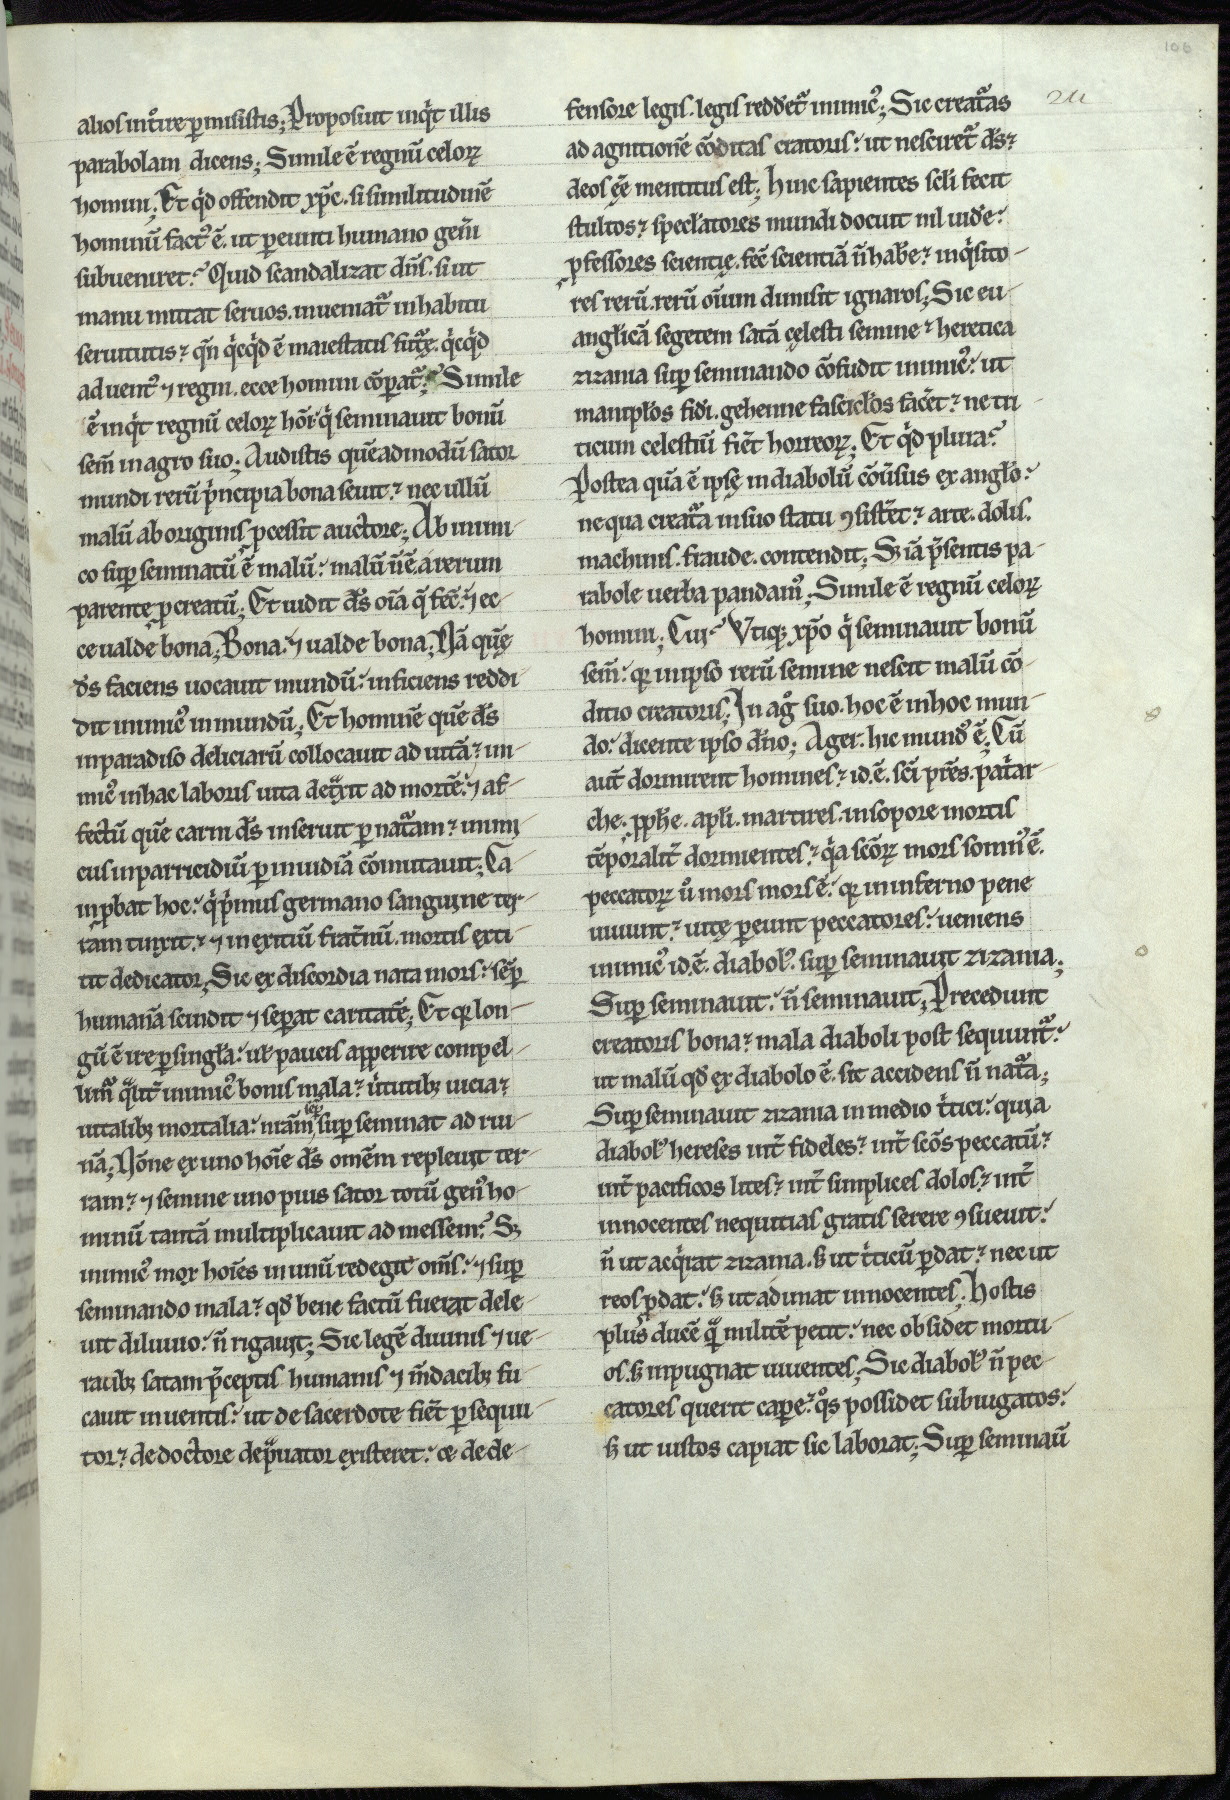 106
211
alios int̉ire ꝑmisistis; Proposuit inq̇t illis
parabolam dicens; Simile ē regnū celoꝝ
homini; Et qͥd offendit xp̄c. si similitudinē
hominū factꝰ ē. ut ꝑeunti humano gen̄i
subueniret? Quid scandalizat dn̄s. si ut
manu mittat seruos. inueniat᷑ in habitu
seruitutis? qn̄ qͥcqͥd ē maiestatis fut᷑ę. qͥcqͥd
aduentꝰ ⁊ regni. ecce homini cōparat᷑; Simile
ē inqͥt regnū celoꝝ hoi᷑ qͥ seminauit bonū
sem̄ in agro suo; Audistis quēadmodū sator
mundi rerū pͥncipia bona seuit? nec ullū
malū ab originis ꝓcessit auctore; Ab inimi-
co suꝑ seminatū ē malū: malū n̄ ē a rerum
parente ꝓcreatū; Et uidit d̄s oīa q̄ fec̄: ⁊ ec-
ce ualde bona; Bona: ⁊ ualde bona; Nā quę
d̄s faciens uocauit mundū: inficiens reddi-
dit inimicꝰ in mundū; Et hominē quē d̄s
in paradiso deliciarū collocauit ad uitā? ini-
micꝰ in hac laboris uita detͣxit ad mortē: ⁊ af-
fectū quē carni d̄s inseruit ꝑ nat᷑am? inimi-
cus in parricidiū ꝑ inuidiā cōmutauit; Ca-
in ꝓbat hoc: qͥ pͥmus germano sanguine ter-
ram tinxit? ⁊ in exitiū frat̄nū. mortis exti-
tit dedicator; Sic ex discordia nata mors: semꝑ
humanā scindit ⁊ seꝑat caritatē; Et qꝛ lon-
gū ē ire ꝑ singl̄a: uł paucis apperire compel-
limur᷑ qͣlit̄ inimicꝰ bonis mala? uͥtutibꝫ uicia?
uitalibꝫ mortalia: nām semꝑ suꝑ seminat ad rui-
nā; Nōne ex uno hoīe d̄s omēm repleuit ter-
ram? ⁊ semine uno pius sator totū genꝰ ho-
minū tantā multiplicauit ad messem? Sꝫ
inimicꝰ mox hoīes in unū redegit oīns: ⁊ suꝑ
seminando mala? qd̄ bene factū fuerat dele-
uit diluuio: n̄ rigauit; Sic legē diuinis ⁊ ue-
racibꝫ satam p̄ceptis humanis ⁊ m̄dacibꝫ fu-
cauit inuentis: ut de sacerdote fiet᷑ ꝑsequu-
tor? de doctore depͣuator existeret: ce de de-
fensore legis. legis reddet᷑ inimicꝰ; Sic creat᷑as
ad agnitionē cōditas c̄atoris: ut nesciret᷑ d̄s?
deos eē mentitus est; Hinc sapientes scl̄i fecit
stultos? specl̄atores mundi docuit nil uid̄e:
ꝓfessores scientię. fec̄ scientiā n̄ hab̄e? inqͥsito-
res rerū. rerū oīum dimisit ignaros; Sic eu-
angl̄icā segetem satā cęlesti semine? heretica
zizania suꝑ seminando cōfudit inimicꝰ: ut
manipl̄os fid̄i. gehenne fascicl̄os fac̄et? ne tri-
ticum celestiū fiet᷑ horreoꝝ; Et qͥd plura?
Postea quā ē ipsę in diabolū cōuersus ex angl̄o:
ne qua creat᷑a in suo statu ꝯsist̄et? arte. dolis.
machinis. fraude. contendit; Sꝫ iā p̄sentis pa-
rabole uerba pandamꝰ; Simile ē regnū celoꝝ
homini; Cui? Utiqꝫ xp̄o qͥ seminauit bonū
sem̄: qꝛ in ipso rerū semine nescit malū cō-
ditio creatoris; In agͦ suo. hoc ē in hoc mun-
do: dicente ipso dn̄o; Ager. hic mundꝰ ē; Cū
aut̄ dormirent homines? id. ē. sc̄i pr̄es. patͥar-
che. ꝓphe. apl̄i. martires. in sopore mortis
tēporalit̄ dormientes? qͥa scōꝝ mors somnꝰ ē.
peccatoꝝ uͦ mors mors ē: qꝛ in inferno pene
uiuunt? uitę ꝑeunt peccatores: ueniens
inimicꝰ id. ē. diabolꝰ. suꝑ seminauit zizania;
Suꝑ seminauit: n̄ seminauit; Precedunt
creatoris bona? mala diaboli post sequunt᷑:
ut malū qd̄ ex diabolo ē. sit accidens n̄ nat᷑a;
Suꝑ seminauit zizania in medio tͥtici: quia
diabolꝰ hereses int̄ fideles? int̄ scōs peccatū?
int̄ pacificos lites? int̄ simplices dolos? int̄
innocentes nequitias gratis serere ꝯsueuit:
n̄ ut acqͥrat zizania. sꝫ ut tͥticū ꝑdat? nec ut
reos ꝑdat: sꝫ ut adimat innocentes; Hostis
plus ducē qͣ militē petit: nec obsidet mortu-
os. sꝫ inpugnat uiuentes; Sic diabolꝰ n̄ pec-
catores querit caꝑe? qͦs possidet subiugatos:
sꝫ ut iustos capiat sic laborat; Suꝑ seminau̅